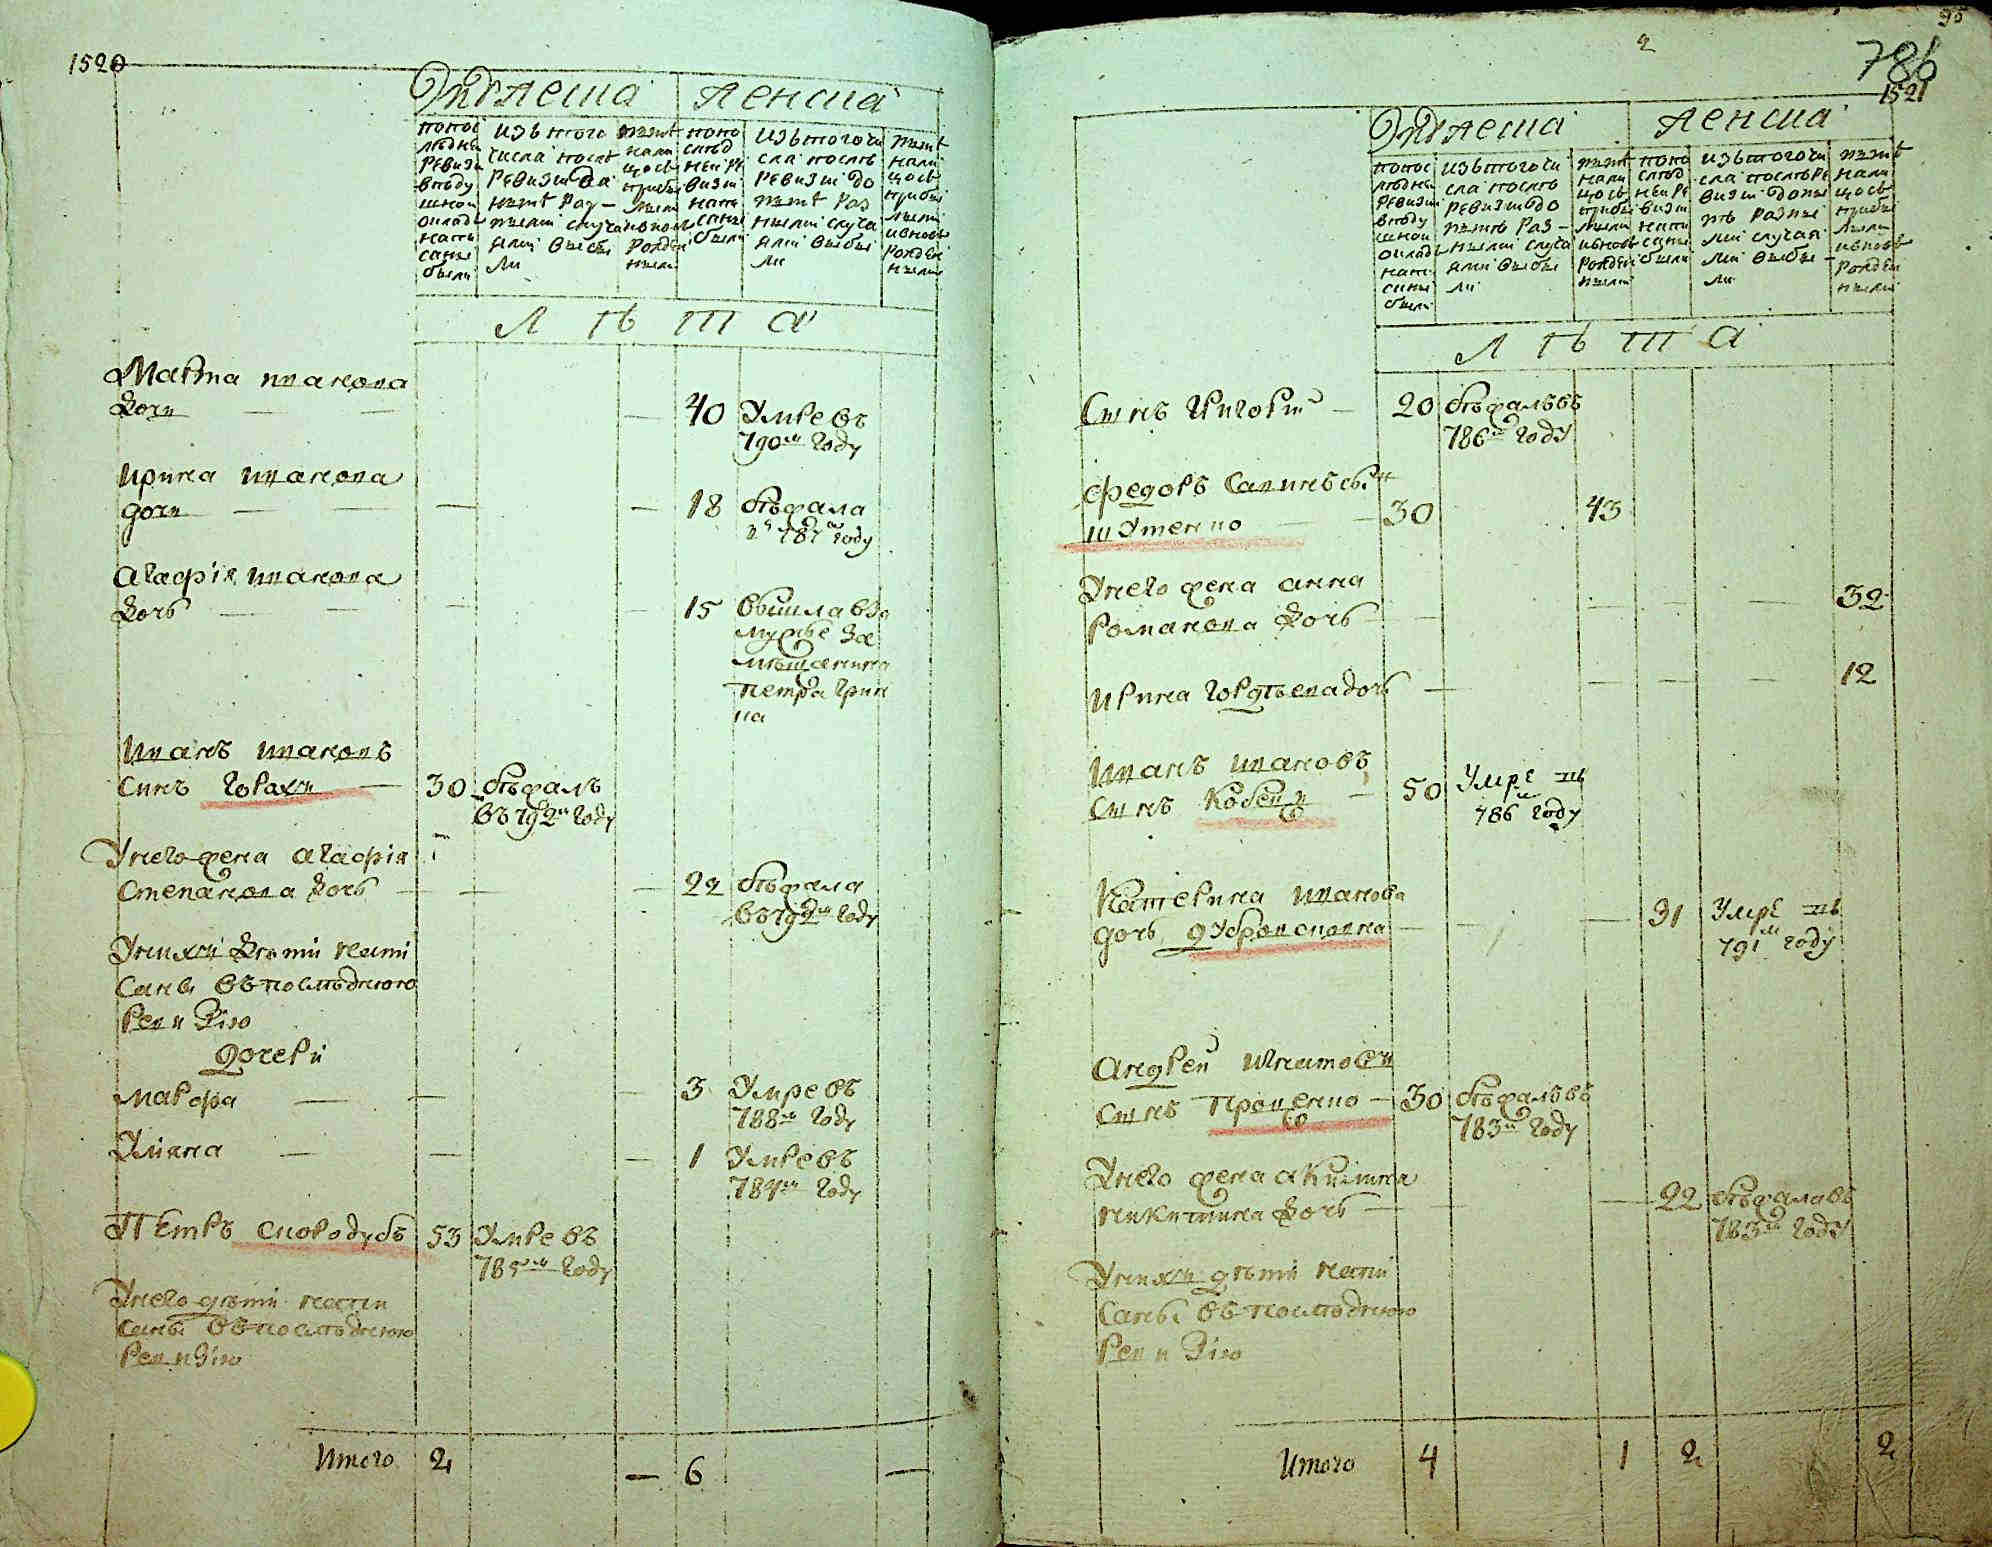 1520
Мужеска
женска
по пос
ледней
ревизи
в поду
шном
окладе
напи
саны
были
изъ того
числа после
ревизии до
ныне раз
ными случа
ями выбы
ли
ныне
нали
цо съ
прибы
лыми
и вновь
рожден
ными
по по
след
ней ре
визии
напи
саны
были
изъ того чи
сла после
ревизии до
ныне раз
ными случа
ями выбы
ли
ныне
нали
цо съ
прибы
лыми
и вновь
рожден
ными
Л ѣ т а
Марѳа иванова
дочь 40 Умре въ
790м году
ирина иванова
дочь 18 бѣжала
787м году
агафія иванова
дочь 15 вышла въ за
мужъе за
мѣщанина
петра
на
иванъ ивановъ
синъ горахъ 30 бѣжалъ
въ 792м году
У него жена агафія
степанова дочь 22 бѣжала
въ 792м году
У нихъ дѣти напи
саны въ последнюю
ревизію
дочери
марфа 3 Умре въ
788м году
Уліяна 1 Умре въ
784м году
Петръ сководубъ 53 Умре въ
785м году
У него дѣти напи
саны въ последнюю
ревизію
Итого 2 — 6 —
95
2
786
1521
Мужеска
женска
по пос
ледней
ревизии
в поду
шном
окладе
напи
саны
были
изъ того чи
сла после
ревизии до
ныне раз
ными случа
ями выбы
ли
ныне
нали
цо съ
прибы
лыми
и вновь
рожден
ными
по по
след
ней ре
визии
напи
саны
были
изъ того чи
сла после ре
визии до ны
не разны
ми случая
ми выбы
ли
ныне
нали
цо съ
прибы
лыми
и вновь
рожден
ными
Л ѣ т а
Сынъ григорий 20 бѣжалъ въ
786м году
федоръ савинъ сынъ
шутенко 30 43
У него жена анна
романова дочь 32
ирина гордѣева дочь 12
иванъ ивановъ
сынъ кобецъ 50 Умре въ
786м году
катерина иванова
дочь дубровсковна 31 Умре въ
791м году
андрей игнатовъ
сынъ проценко 30 бѣжалъ въ
783м году
У него жена акилина
никитина дочь 22 бѣжала въ
783м году
У нихъ дѣти напи
саны въ последнюю
ревизію
Итого 4 1 2 2